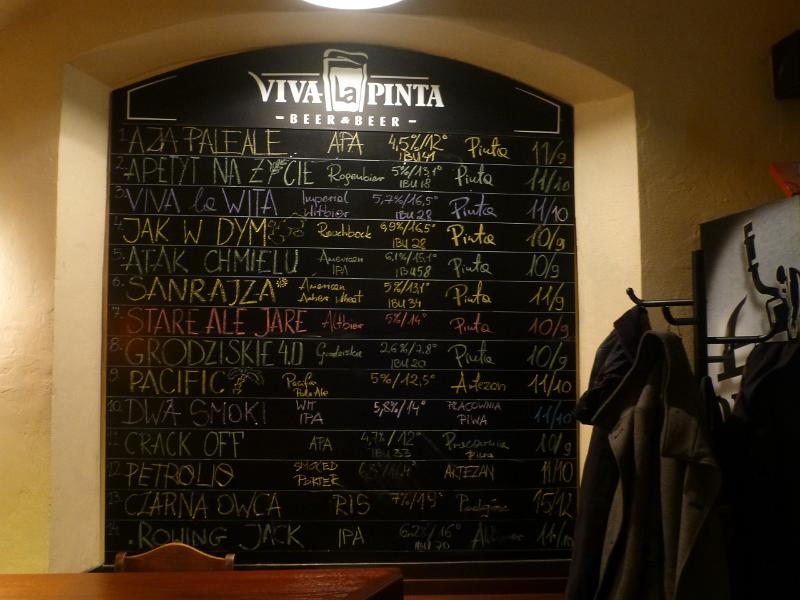 VIVA La PINTA
- BEER & BEER -
1. AZA PALE ALE APA 4,5%/12° IBU 41 Pinta 11/9
2. APETYT NA ŻYCIE Rogenbier 5%/13,1° IBU 18 Pinta 11/10
3. VIVA la WITA Imperial Witbier 5,7%/16,5° IBU 28 Pinta 11/10
4. JAK W DYM Rauchbock 6,9%/16,5° IBU 28 Pinta 10/9
5. ATAK CHMIELU American IPA 6,1%/15,1° IBU 58 Pinta 10/9
6. SANRAJZA American Amber Wheat 5%/13,1° IBU 34 Pinta 11/9
7. STARE ALE JARE Altbier 5%/14° Pinta 10/9
8. GRODZISKIE 4.0 Grodziskie 2,6%/7,8° IBU 20 Pinta 10/9
9. PACIFIC Pacific Pale Ale 5%/12,5° Artezan 11/10
10. DWA SMOKI WIT IPA 5,8%/14° PRACOWNIA PIWA 11/10
11. CRACK OFF APA 4,7%/12° IBU 33 Pracownia Piwa 10/9
12 PETROLIO SMOCED PORTER ARTEZAN 11/10
13. CZARNA OWCA RIS 7%/19° 15/12
14. ROWING JACK IPA 6,2%/16° IBU 70